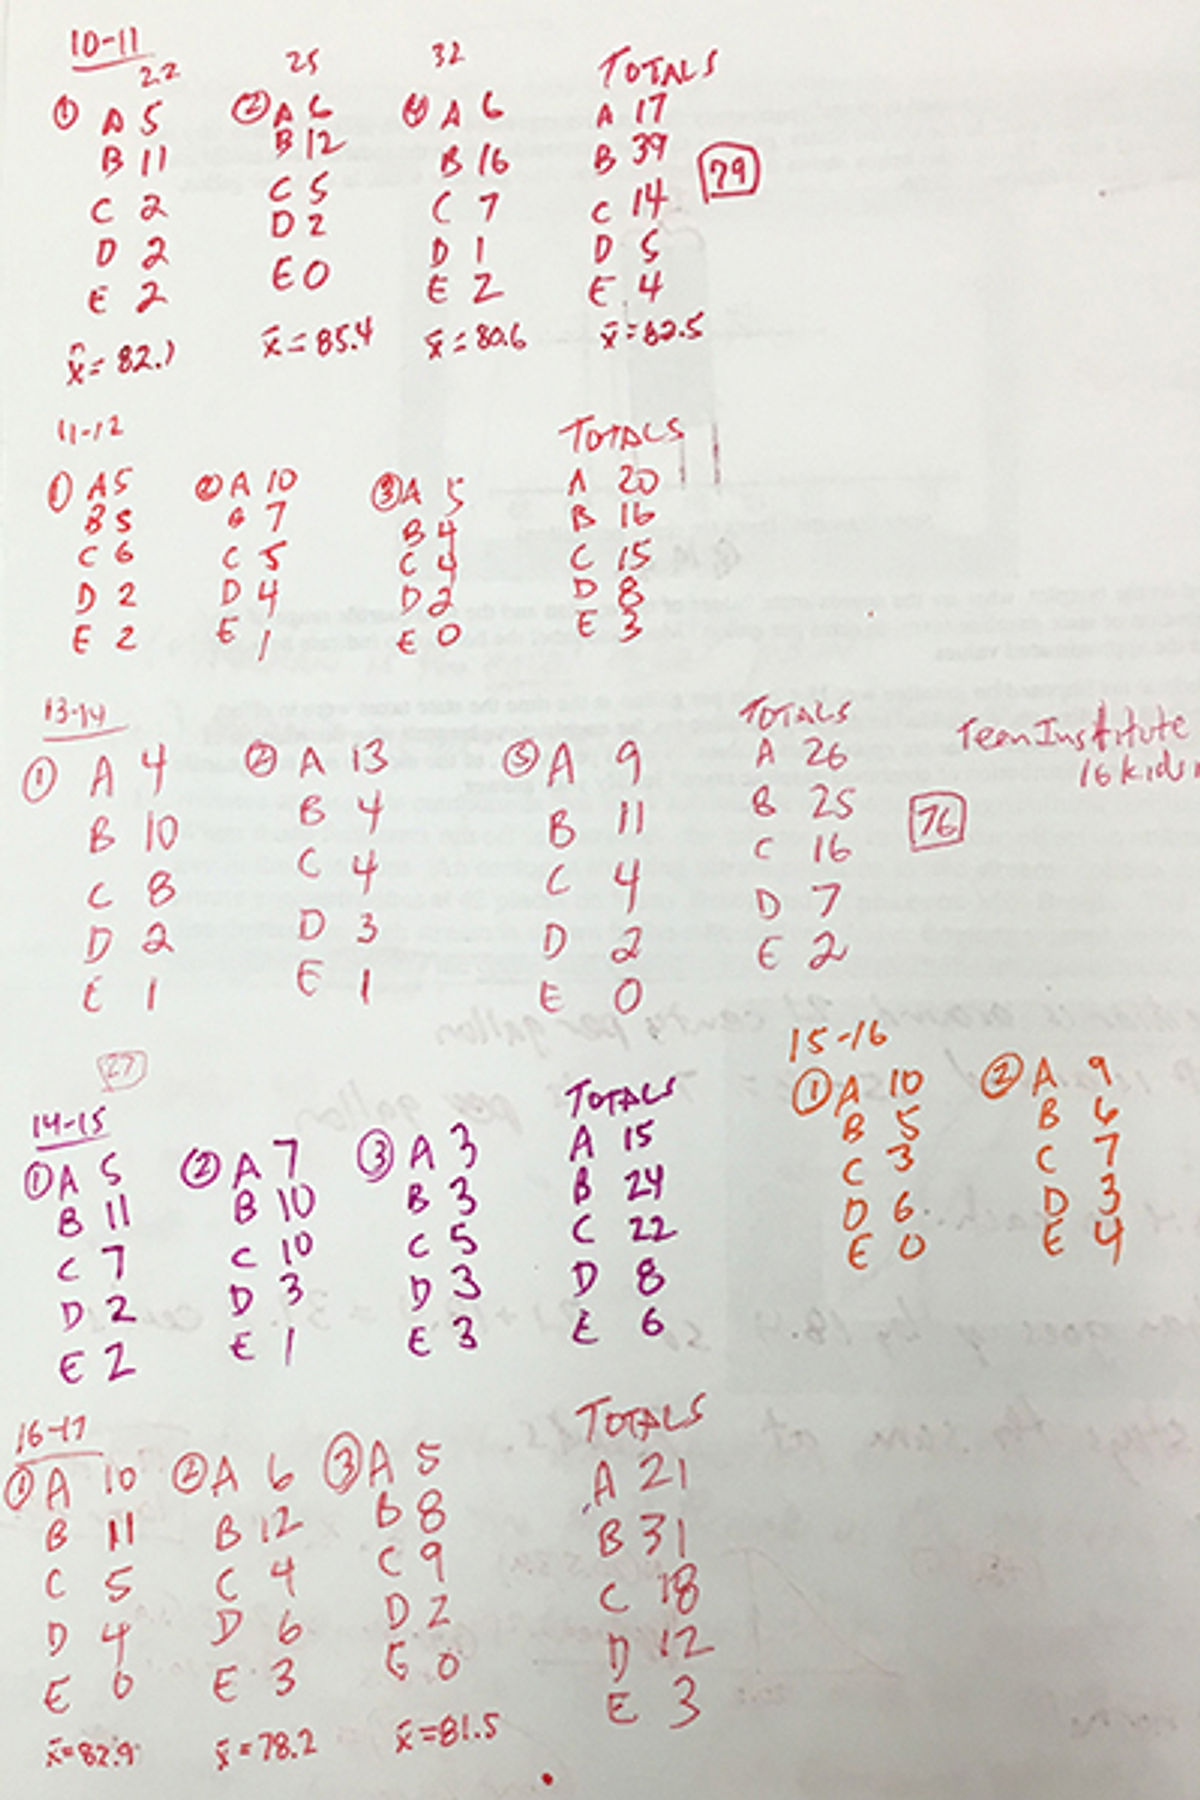 10-11
22 25 32 TOTALS
① A 5 ② A 6 ④ A 6 A 17
B 11 B 12 B 16 B 39 79
C 2 C 5 C 7 C 14
D 2 D 2 D 1 D 5
E 2 E 0 E 2 E 4
x̄=82.1 x̄=85.4 x̄=80.6 x̄=82.5
11-12 TOTALS
① A 5 ② A 10 ③ A 5 A 20
B 5 B 7 B 4 B 16
C 6 C 5 C 4 C 15
D 2 D 4 D 2 D 8
E 2 E 1 E 0 E 3
13-14 TOTALS
① A 4 ② A 13 ⑤ A 9 A 26 Teen Institute
B 10 B 4 B 11 B 25 76 16 kids
C 8 C 4 C 4 C 16
D 2 D 3 D 2 D 7
E 1 E 1 E 0 E 2
15-16
① A 10 ② A 9
B 5 B 6
C 3 C 7
D 6 D 3
E 0 E 4
27
14-15 TOTALS
① A 5 ② A 7 ③ A 3 A 15
B 11 B 10 B 3 B 24
C 7 C 10 C 5 C 22
D 2 D 3 D 3 D 8
E 2 E 1 E 3 E 6
16-17 TOTALS
① A 10 ② A 6 ③ A 5 A 21
B 11 B 12 B 8 B 31
C 5 C 4 C 9 C 18
D 4 D 6 D 2 D 12
E 0 E 3 E 0 E 3
x̄=82.9 x̄=78.2 x̄=81.5